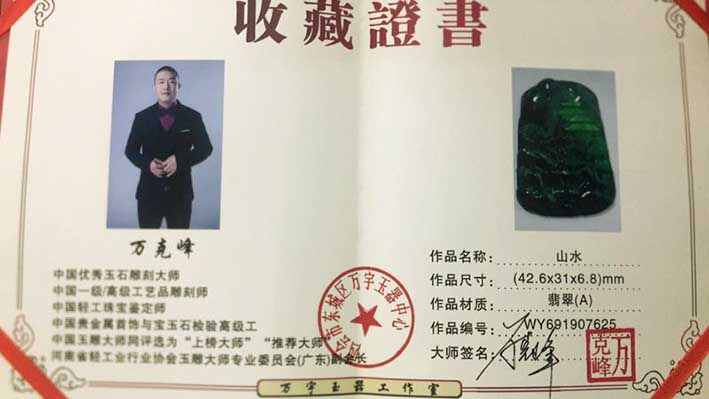 收藏證書
万克峰
中国优秀玉石雕刻大师
中国一级/高级工艺品雕刻师
中国轻工珠宝鉴定师
中国贵金属首饰与宝玉石检验高级工
中国玉雕大师网评选为“上榜大师”“推荐大师”
河南省轻工业行业协会玉雕大师专业委员会(广东)副会长
会市东城区万宇玉器中心
作品名称: 山水
作品尺寸: (42.6x31x6.8)mm
作品材质: 翡翠(A)
作品编号: WY691907625
大师签名: 万克峰
万克峰
万宇玉器工作室